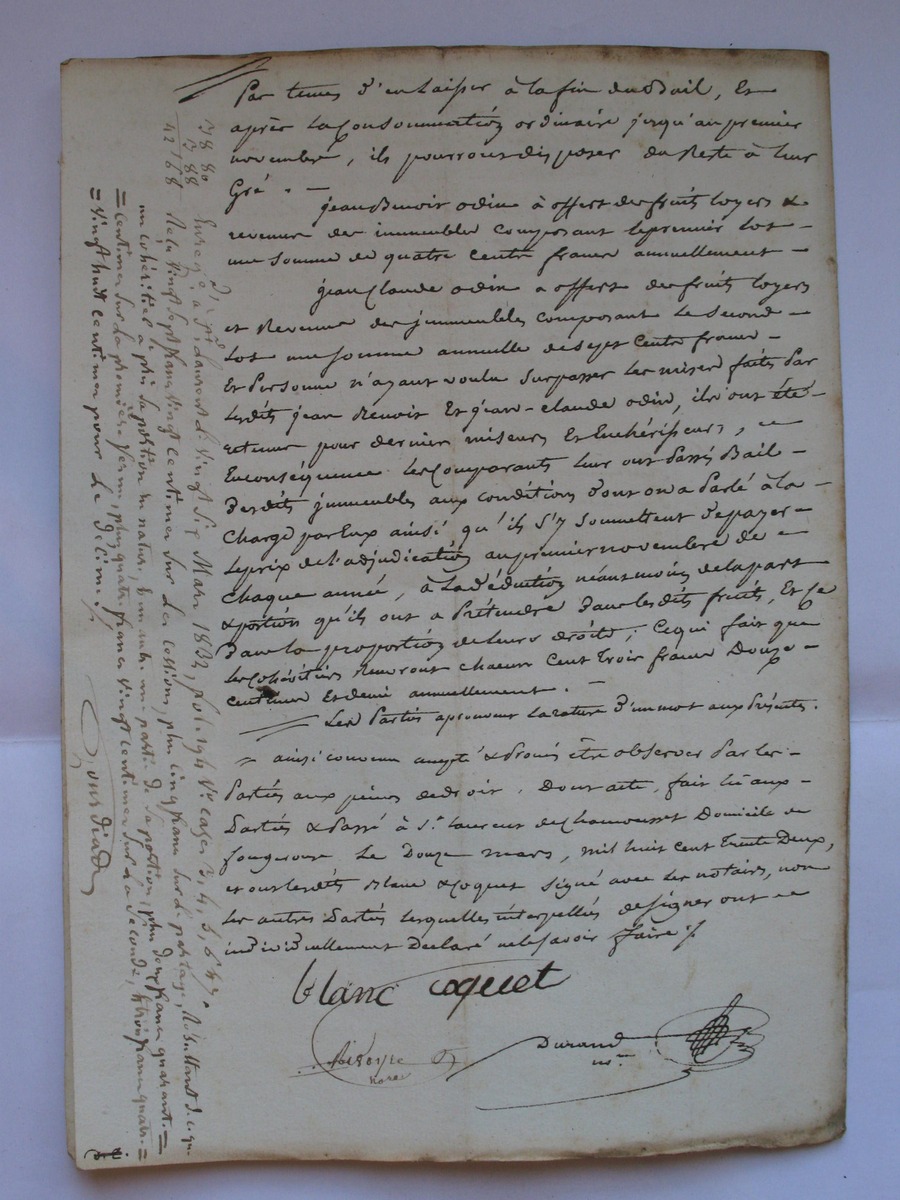 Par tenus d'en Laisser à la fin du Bail, Et
après La Consommation ordinaire jusqu'au premier
novembre, ils pourront disposer du Reste à leur
Gré. —
jean Benoit odin à offert des fruits loyers &
revenus des immeubles composant le premier Lot —
une somme de quatre cents francs annuellement —
jean Claude odin a offert des fruits loyers
et Revenus des jmmeubles composant Le Second —
Lot une somme annuelle de sept Cents francs —
Et Personne n'ayant voulu Surpasser les mises faites Par
lesdits jean Benoit Et jean-claude odin, ils ont été
retenus pour derniers miseurs Et Enchérisseurs, —
En conséquence les Comparants leur ont Passé Bail —
Desdits jmmeubles aux conditions dont on a Parlé à la
Charge par Eux ainsi qu'ils s'y Soumettent De payer —
Le prix de l'adjudication au premier novembre de —
chaque année, à La déduction néanmoins de la part
& portion qu'ils ont a Prétendre Dans lesdits fruits, Et Ce
Dans la proportion de leurs droits; Ce qui fait que
les Cohéritiers Recevront chacun Cent Trois francs Douze —
centimes Et demi annuellement. —
Les Parties aprouvent la rature d'un mot aux Présentes.
ainsi convenu accepté & Promis être observer Par les —
Parties aux peines de droit. Dont acte, fait lu aux —
Parties & Passé à St. Laurent de Chamousset Domicile de
fougerouse Le Douze mars, mil huit cent trente Deux,
et ont lesdits Blanc & Coquet signé avec les notaires, non
les autres Parties lesquelles interpellés de signer ont —
individuellement Déclaré ne le savoir faire ./.
blanc coquet
Durand
nre
38 80
3 88
42 68
Enregé à St. Laurent L. Vingt Six Mars 1832, fol. 94 Vo. cases 3, 4, 5, 6 & 7.
Reçu Vingt Sept francs Vingt centimes Sur Les cessions, plus cinq francs Sur Le partage, Résultant de ce qu'
un cohéritier a pris sa portion en nature, & un autre une partie de sa portion, plus Douze francs quarante
= centimes sur La première Ferme, plus quatre francs vingt centimes sur La seconde, & trois francs quatre =
= Vingt huit centimes pour Le décime ./.